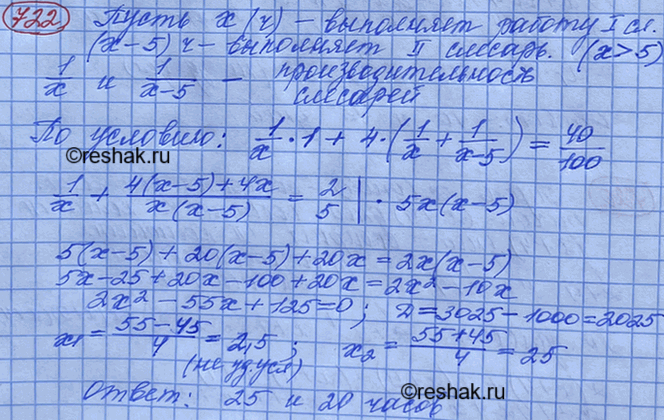 722 Пусть x (ч) – выполняет работу I сл.
(x-5) ч – выполняет II слесарь. (x>5)
1/x и 1/(x-5) – производительность
слесарей
По условию: 1/x · 1 + 4·(1/x + 1/(x-5)) = 40/100
©reshak.ru
1/x + (4(x-5)+4x)/(x(x-5)) = 2/5 | · 5x(x-5)
5(x-5)+20(x-5)+20x = 2x(x-5)
5x-25+20x-100+20x = 2x²-10x
2x² - 55x + 125 = 0 ; Д = 3025 - 1000 = 2025
x₁ = (55-45)/4 = 2,5 ; x₂ = (55+45)/4 = 25
(не уд.усл)
©reshak.ru
Ответ: 25 и 20 часов